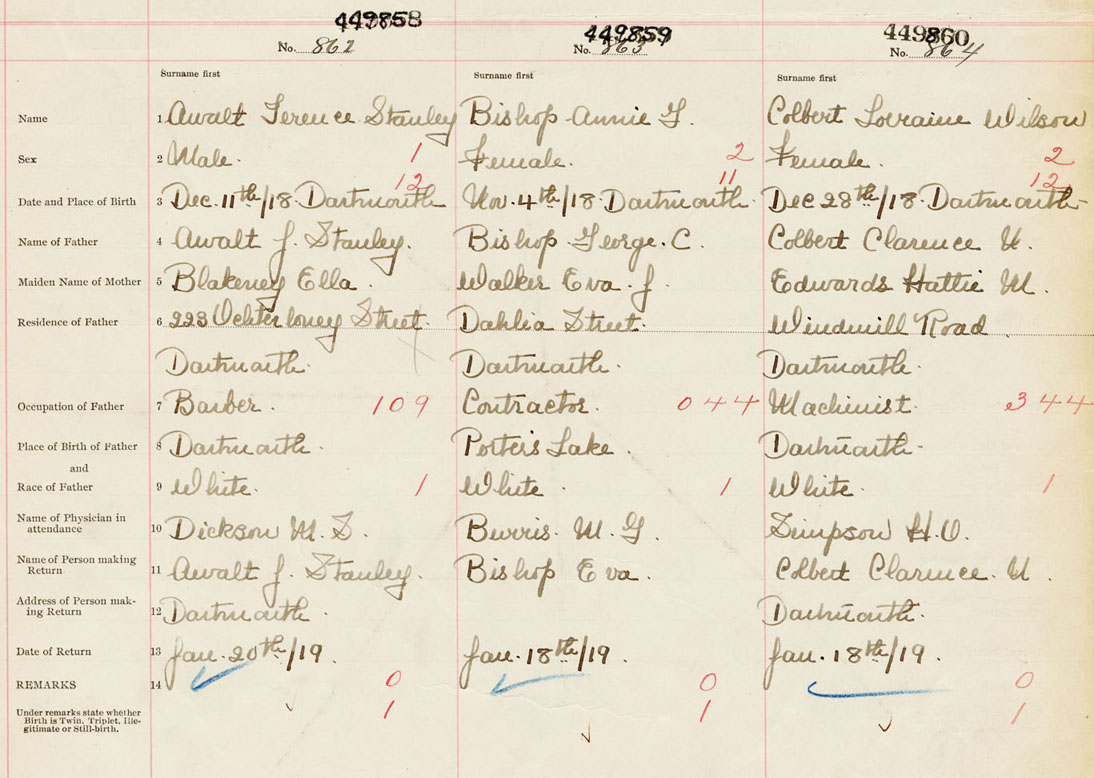 449858 449859 449860
No. 862 No. 863 No. 864
Surname first Surname first Surname first
Name 1 Awalt Terence Stanley Bishop Annie G. Colbert Lorraine Wilson
Sex 2 Male. 1 Female. 2 Female. 2
12 11 12
Date and Place of Birth 3 Dec. 11th/18 Dartmouth Nov. 4th/18 Dartmouth Dec 28th/18 Dartmouth
Name of Father 4 Awalt J. Stanley. Bishop George. C. Colbert Clarence W.
Maiden Name of Mother 5 Blakeney Ella. Walker Eva. J. Edwards Hattie M.
Residence of Father 6 223 Ochterloney Street. Dahlia Street. Windmill Road
Dartmouth. Dartmouth. Dartmouth.
Occupation of Father 7 Barber. 109 Contractor. 044 Machinist. 344
Place of Birth of Father 8 Dartmouth. Porters Lake. Dartmouth.
and
Race of Father 9 White. 1 White. 1 White. 1
Name of Physician in
attendance 10 Dickson M. S. Burris. M. G. Simpson H.O.
Name of Person making
Return 11 Awalt J. Stanley. Bishop Eva. Colbert Clarence. W.
Address of Person mak-
ing Return 12 Dartmouth. Dartmouth.
Date of Return 13 Jan. 20th/19. Jan. 18th/19. Jan. 18th/19.
REMARKS 14 0 0 0
Under remarks state whether
Birth is Twin, Triplet, Ille-
gitimate or Still-birth. 1 1 1